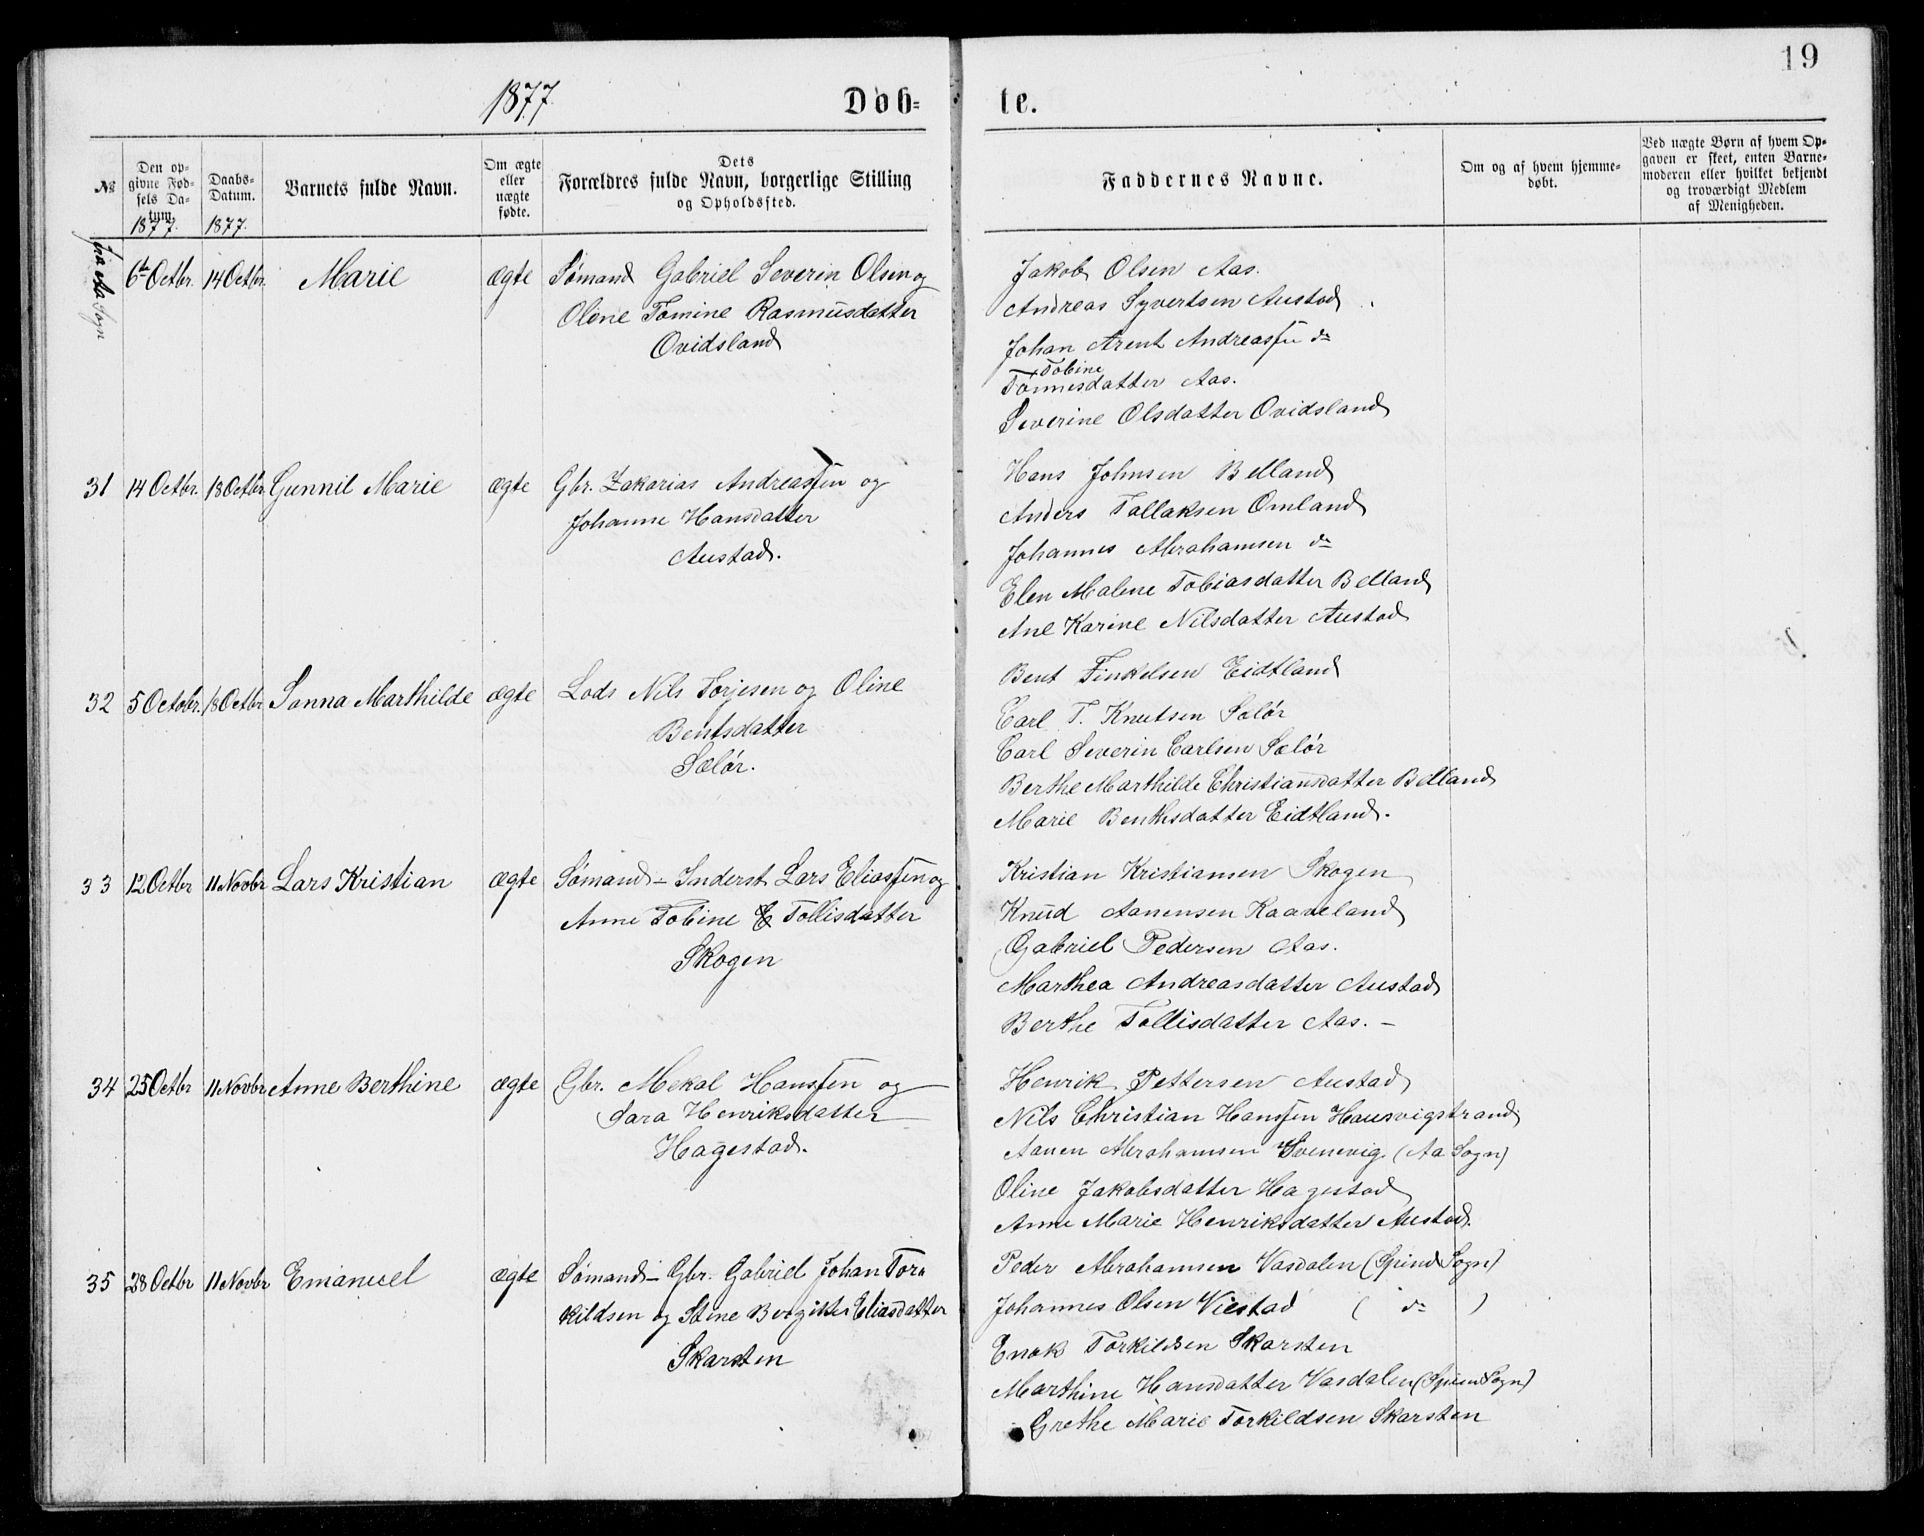 19
1877.
Døb=
te.
№
Den op-
givne Fød-
sels Da-
tum.
1877.
Daabs-
Datum.
1877.
Barnets fulde Navn.
Om ægte
eller
uægte
fødte.
Dets
Forældres fulde Navn, borgerlige Stilling
og Opholdssted.
Faddernes Navne.
Om og af hvem hjemme-
døbt.
Ved uægte Børn af hvem Op-
gaven er skeet, enten Barne-
moderen eller hvilket bekjendt
og troværdigt Medlem
af Menigheden.
fra Aa Sogn
6te Octbr. 14 Octbr. Marie ægte Sømand Gabriel Severin Olsen og
Oline Tomine Rasmusdatter
Ovidsland
Jakob Olsen Aas.
Andreas Syvertsen Austad
Johan Arent Andreassen do
Tobine
Tønnesdatter Aas.
Severine Olsdatter Ovidsland
31 14 Octbr. 18 Octbr. Gunnil Marie ægte Gbr. Zakarias Andreassen og
Johanne Hansdatter
Austad.
Hans Johnsen Belland
Anders Tollaksen Omland
Johannes Abrahamsen do
Elen Malene Tobiasdatter Belland
Ane Karine Nilsdatter Austad
32 5 Octobr. 18 Octbr. Sanna Marthilde ægte Lods Nils Torjesen og Oline
Bentsdatter
Selør.
Bent Finkelsen Eidtland
Carl T. Knutsen Selør
Carl Severin Carlsen Selør
Berthe Marthilde Christiansdatter Belland
Marie Benthsdatter Eidtland.
33 12 Octbr 11 Novbr Lars Kristian ægte Sømand - Inderst Lars Eliassen og
Anne Tobine E Tollisdatter
Skogen
Kristian Kristiansen Skogen
Knud Aanensen Kaaveland
Gabriel Pedersen Aas.
Marthea Andreasdatter Austad
Berthe Tollisdatter Aas. -
34 25 Octbr 11 Novbr Anne Berthine ægte Gbr. Mekal Hanssen og
Sara Henriksdatter
Hagestad.
Henrik Pettersen Austad
Nils Christian Hanssen Hausvigstrand
Aanen Abrahamsen Svenevig (Aa Sogn)
Oline Jakobsdatter Hagestad
Anne Marie Henriksdatter Austad.
35 28 Octbr 11 Novbr Emanuel ægte Sømand - Gbr. Gabriel Johan Tor
kildsen og Stine Birgitte Eliasdatter
Skarsten
Peder Abrahamsen Vasdalen (Spind Sogn)
Johannes Olsen Viestad ( do )
Enok Torkildsen Skarsten
Marthine Hansdatter Vasdalen (Spind Sogn)
Grethe Marie Torkildsen Skarsten